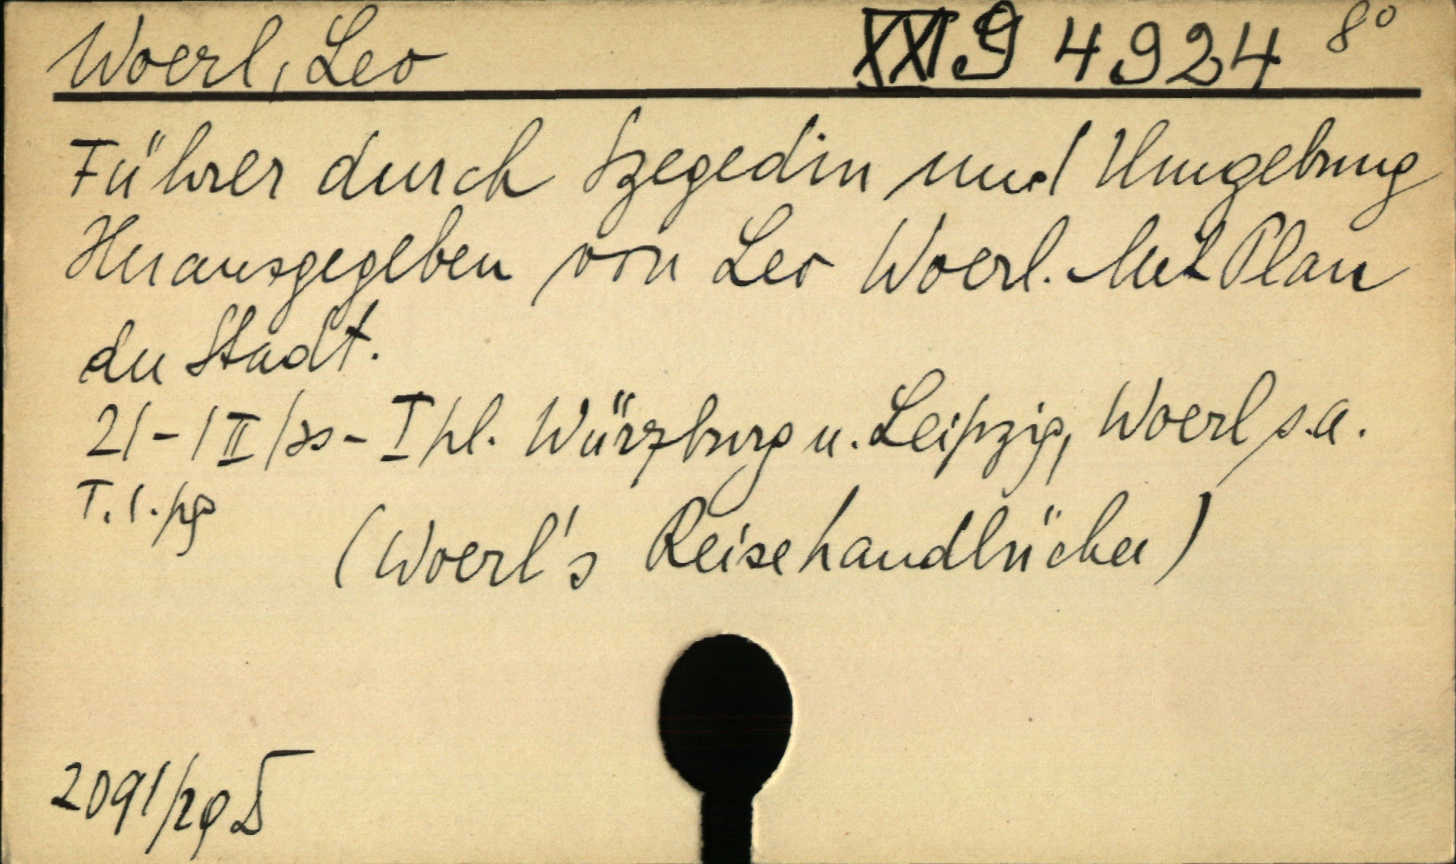 Woerl, Leo XXI 9 4924 8°
Führer durch Szegedin und Umgebung
Herausgegeben von Leo Woerl. Mit Plan
der Stadt.
21-1 II - I pl. Würzburg u. Leipzig, Woerl s.a.
T. 1. pg
(Woerl's Reisehandbücher)
2091/